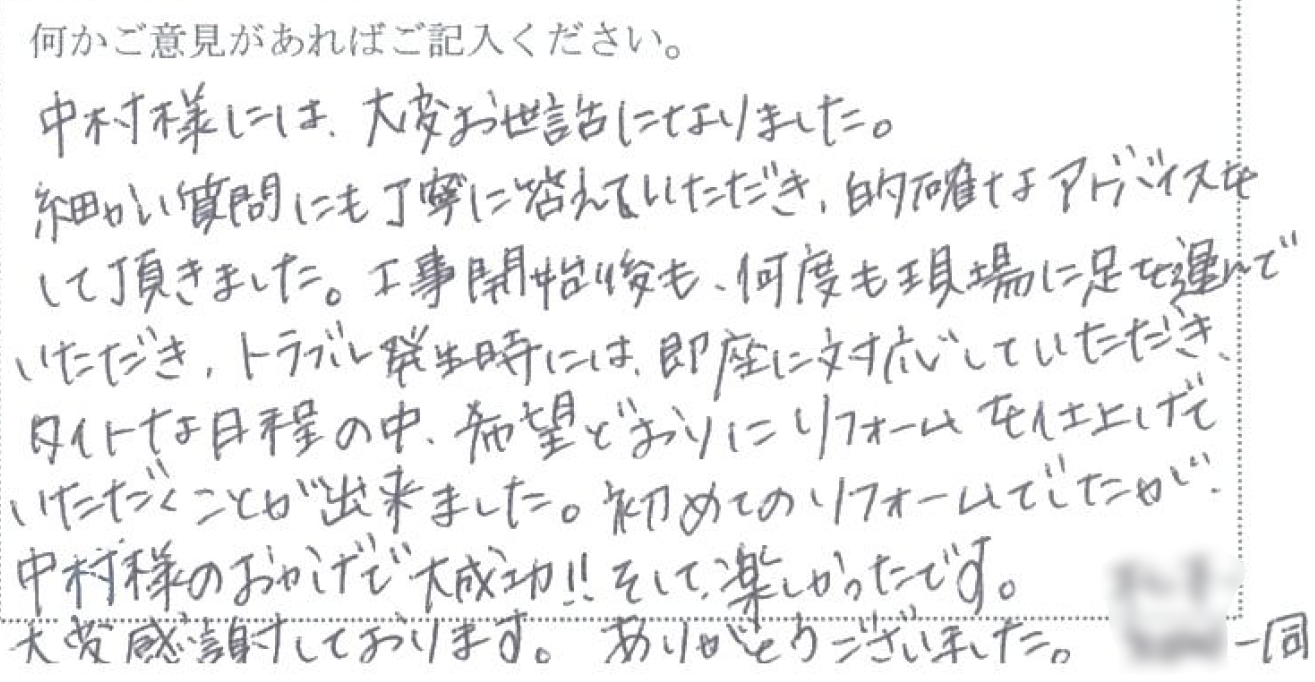 何かご意見があればご記入ください。
中村様には、大変お世話になりました。
細かい質問にも丁寧に答えていただき、的確なアドバイスを
して頂きました。工事開始後も、何度も現場に足を運んで
いただき、トラブル発生時には、即座に対応していただき、
タイトな日程の中、希望どおりにリフォームを仕上げて
いただくことが出来ました。初めてのリフォームでしたが、
中村様のおかげで大成功!!そして、楽しかったです。
大変感謝しております。ありがとうございました。
一同